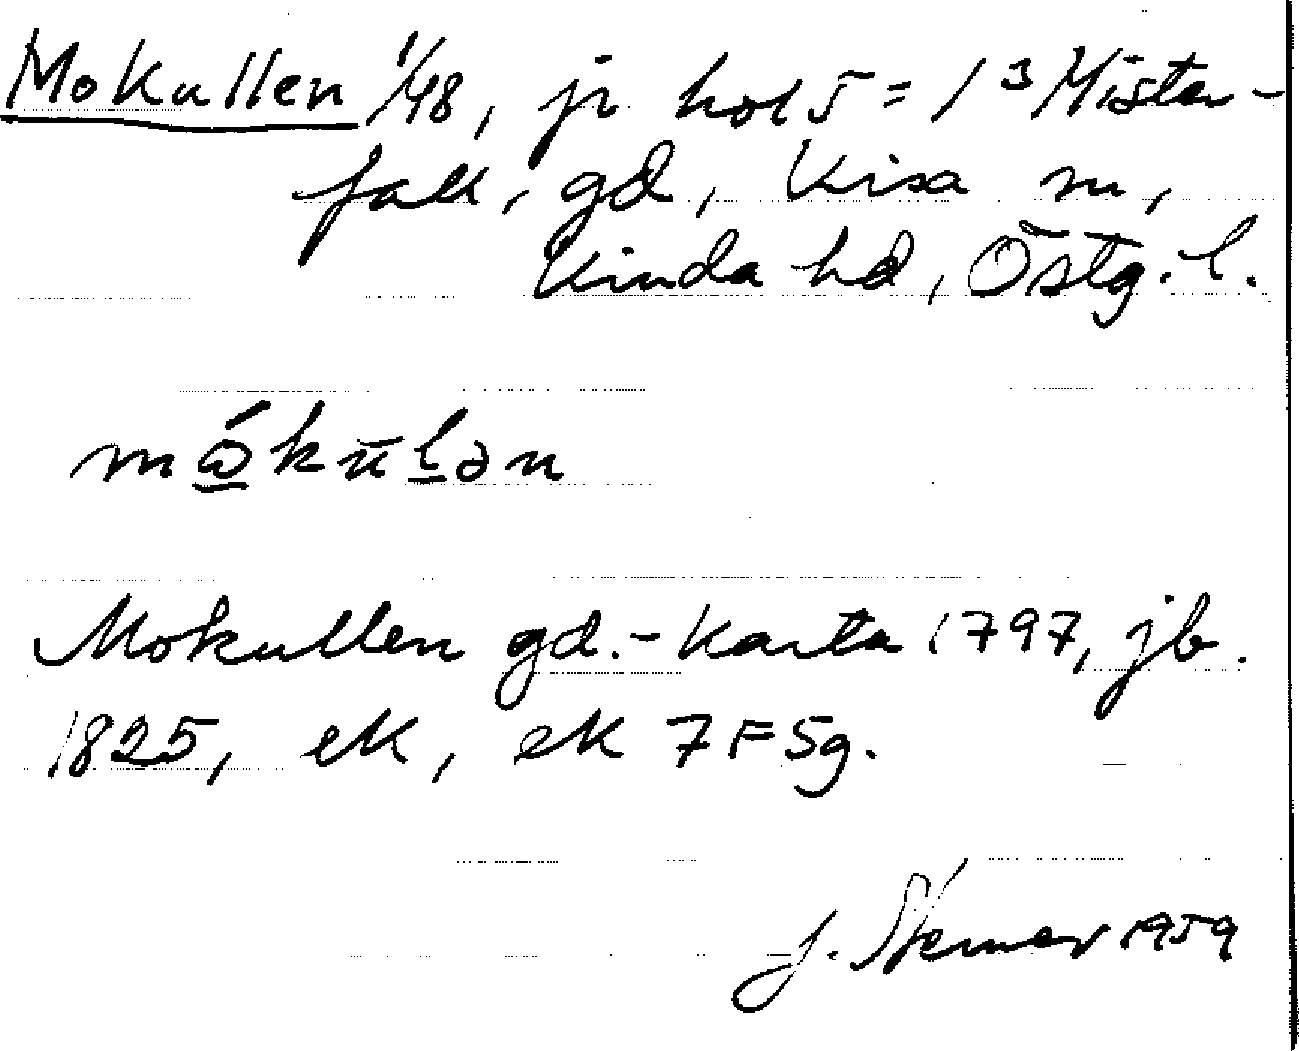 Mokullen 1/48, jr hol 5 = 1 3 Mister-
falt, gd, Kisa sn,
Kinda hd, Östg. l.
Mokullen gd.- Karta 1797, jb.
1825, ek, ek 7F5g.
J. Stenner 1959